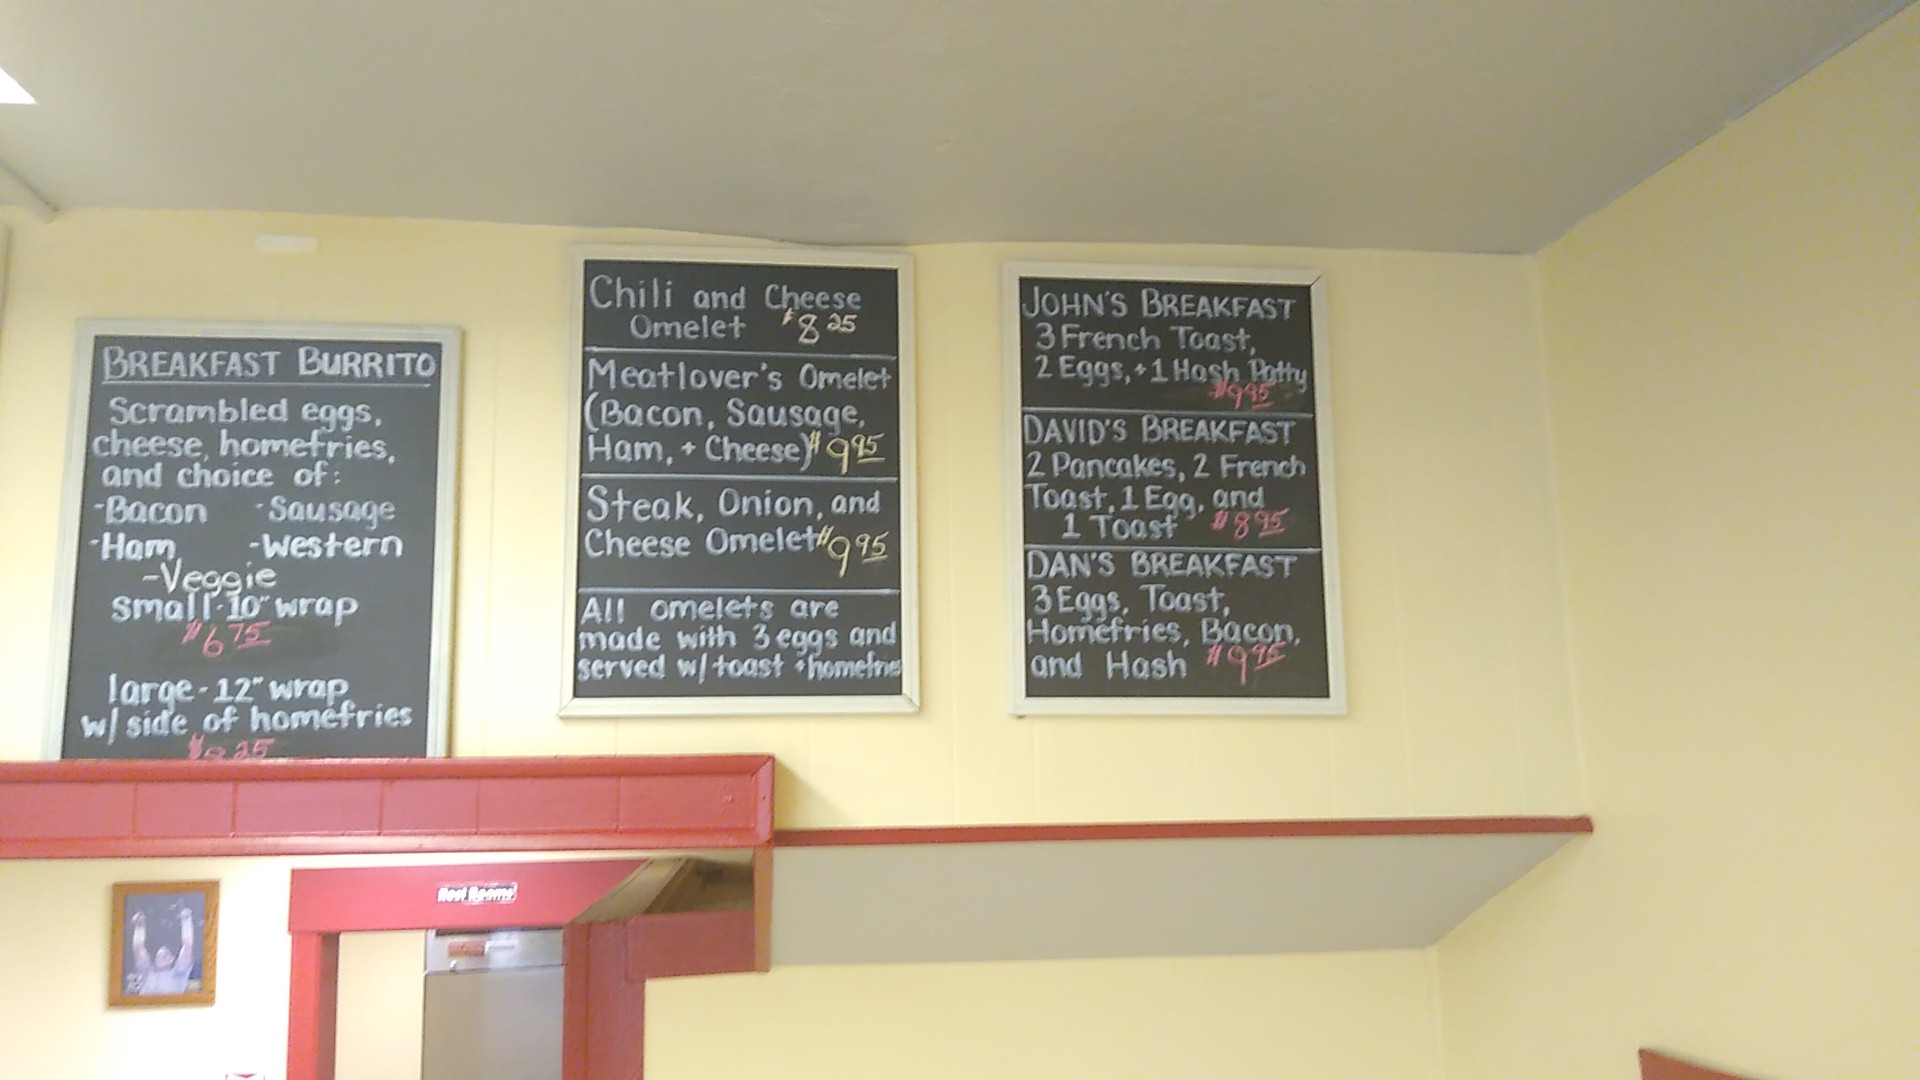 BREAKFAST BURRITO
Scrambled eggs,
cheese, homefries,
and choice of:
-Bacon -Sausage
-Ham -Western
-Veggie
small-10" wrap
$6 75
large-12" wrap
w/ side of homefries
Chili and Cheese
Omelet $8 25
Meatlover's Omelet
(Bacon, Sausage,
Ham, + Cheese) $9 95
Steak, Onion, and
Cheese Omelet $9 95
All omelets are
made with 3 eggs and
served w/ toast + homefries
JOHN'S BREAKFAST
3 French Toast,
2 Eggs, + 1 Hash Patty
$9 95
DAVID'S BREAKFAST
2 Pancakes, 2 French
Toast, 1 Egg, and
1 Toast $8 95
DAN'S BREAKFAST
3 Eggs, Toast,
Homefries, Bacon,
and Hash $9 95
Rest Rooms